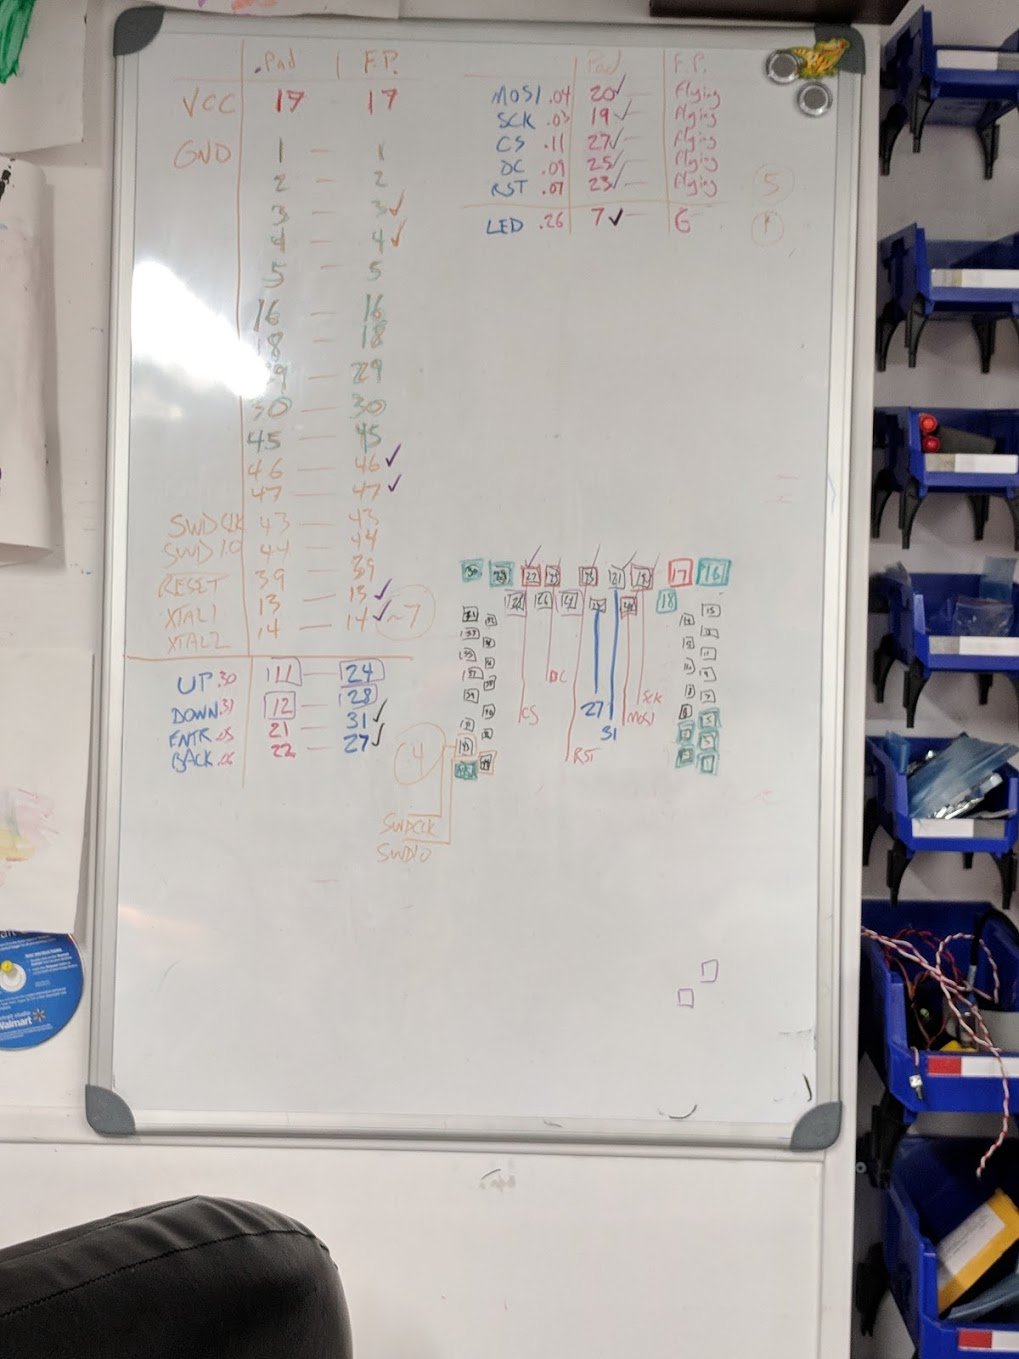 .Pad | F.P.
VCC 17 - 17
GND 1 — 1
2 — 2
3 — 3✓
4 — 4✓
5 — 5
16 — 16
18 — 18
29 — 29
30 — 30
45 — 45
46 — 46✓
47 — 47✓
SWDCLK 43 — 43
SWDIO 44 — 44
RESET 39 — 39
XTAL1 13 — 13✓
XTAL2 14 — 14✓ ~7
UP .30 11 — 24
DOWN .31 12 — 28
ENTR .05 21 — 31✓
BACK .06 22 — 27✓
Pad F.P.
MOSI .04 20✓— Flying
SCK .03 19✓— Flying
CS .11 27✓— Flying
DC .09 25✓— Flying
RST .07 23✓— Flying
5
LED .26 7✓— 6
1
30 29 17 16
18
DC
SCK
CS 27 MOSI
31
RST
4
SWDCLK
SWDIO
Walmart